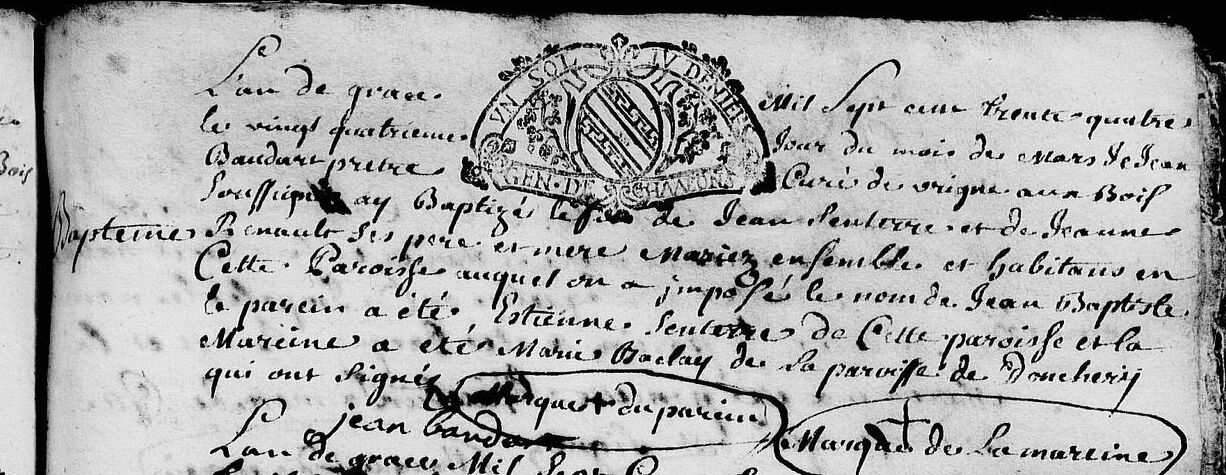 L'an de grace Mil Sept cent trente quatre
le vingt quatrieme Jour du mois de Mars Je Jean
Baudart prêtre Curé de vrigne aux Bois
Soussigné ay Baptizé le fils de Jean Senterre et de Jeanne
Bapteme Renault Ses pere et mere Mariez ensemble et habitans en
Cette Paroisse auquel on a jmposé le nom de Jean Baptiste
le parein a été Estienne Senterre de Cette paroisse et la
Mareine a été Marie Baclay de la paroisse de Donchery
qui ont Signé
Marque + du parein
jean baudart
Marque + de La mareine
L'an de grace Mil Sept
VN SOL IV DENIERS
GEN·DE CHAALONS
Bois